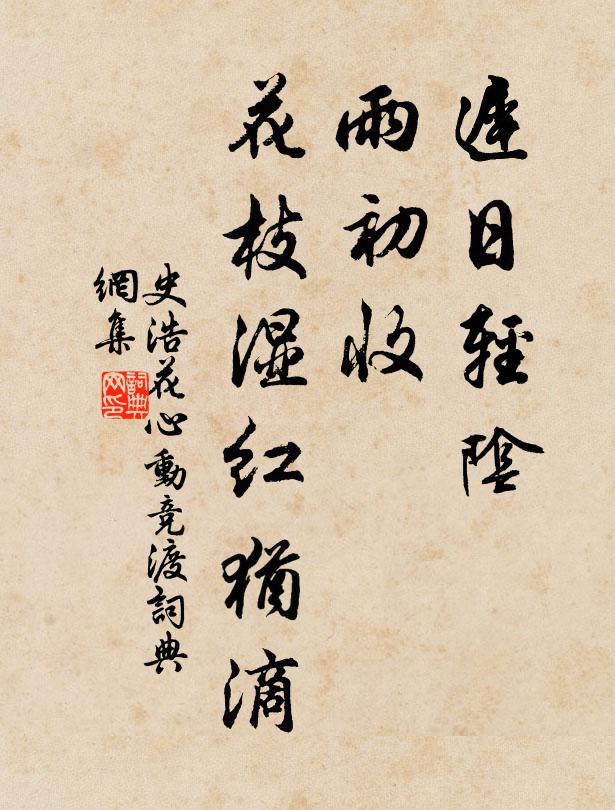 遲日輕陰
雨初收
花枝濕紅猶滴
史浩花心動競渡詞典
網集
詞典
网印